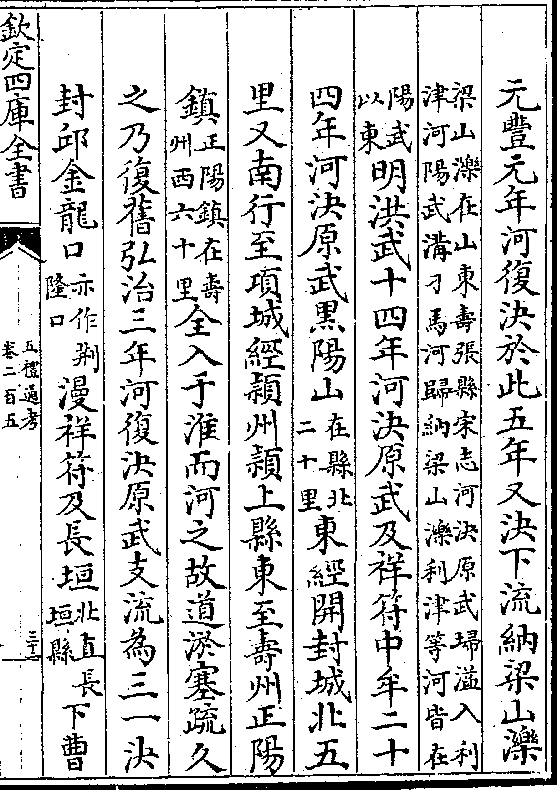 元豐元年河復決於此五年又決下流納梁山濼
梁山濼在山東壽張縣宋志河決原武埽溢入利
津河陽武溝刁馬河歸納梁山濼利津等河皆在
陽武
以東
明洪武十四年河決原武及祥符中牟二十
四年河決原武黑陽山
在縣北
二十里
東經開封城北五
里又南行至項城經潁州潁上縣東至壽州正陽
鎮
正陽鎮在壽
州西六十里
全入于淮而河之故道淤塞疏久
之乃復舊弘治三年河復決原武支流為三一決
封邱金龍口
亦作荆
隆口
漫祥符及長垣
北直長
垣縣
下曹
欽定四庫全書
五禮通考
卷二百五
三十一